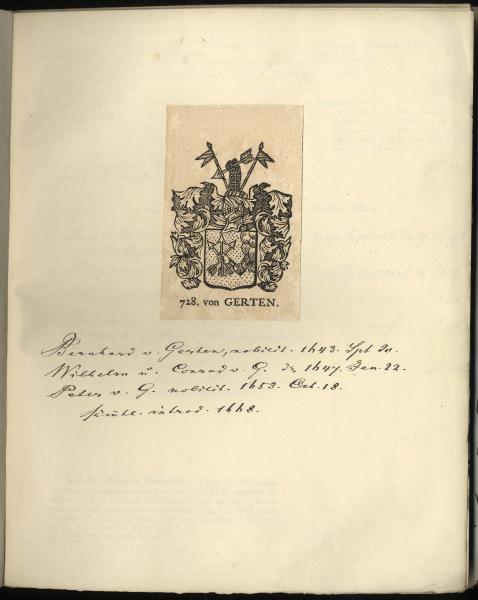 728. von GERTEN.
Bernhard v. Gerten, nobilit. 1643. Spt 20.
Wilhelm u. Conrad v. G. 1647. Jan. 22.
Peter v. G. nobilit. 1653. Oct. 18.
sämtl. introd. 1668.